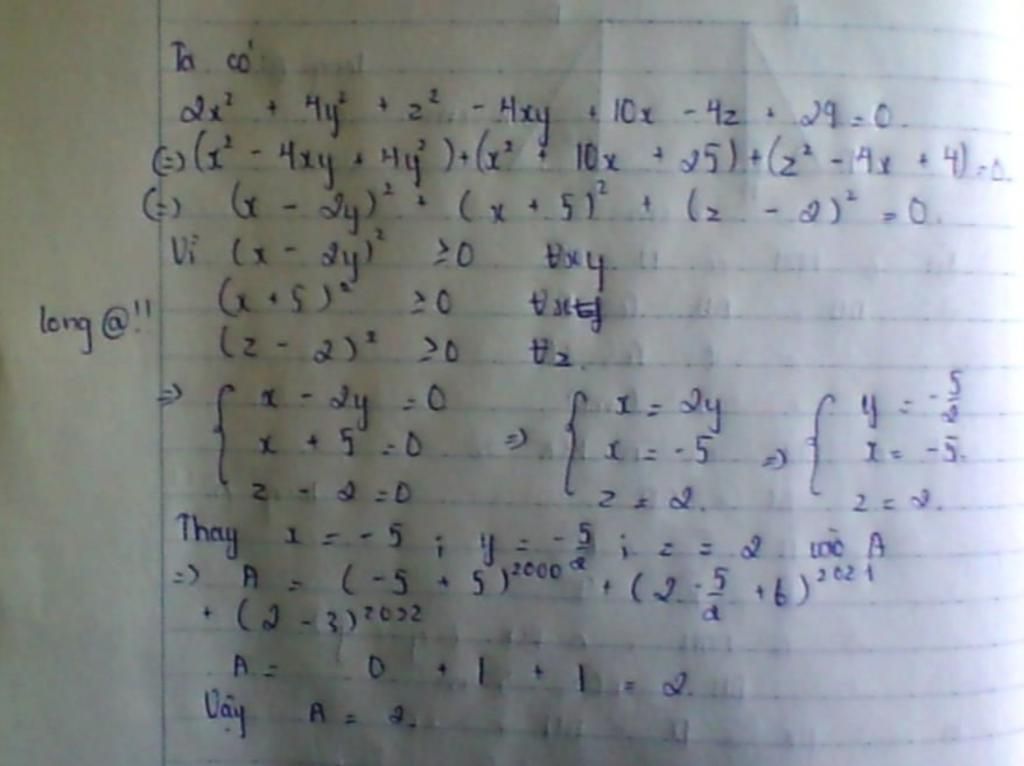 Ta có
2x² + 4y² + z² - 4xy + 10x - 4z + 29 = 0.
(=) (x² - 4xy + 4y²) + (x² + 10x + 25) + (z² - 4x + 4) = 0.
(=) (x - 2y)² + (x + 5)² + (z - 2)² = 0.
Vì (x - 2y)² ≥ 0 ∀xy.
(x + 5)² ≥ 0 ∀x
long @!!
(z - 2)² ≥ 0 ∀z.
=> { x - 2y = 0 => { x = 2y => { y = -5/2
x + 5 = 0 x = -5 x = -5.
z - 2 = 0 z = 2. z = 2.
Thay x = -5 ; y = -5/2 ; z = 2 vào A
=> A = (-5 + 5)²⁰⁰⁰ + (2 · -5/2 + 6)²⁰²¹
+ (2 - 3)²⁰²²
A = 0 + 1 + 1 = 2.
Vậy A = 2.